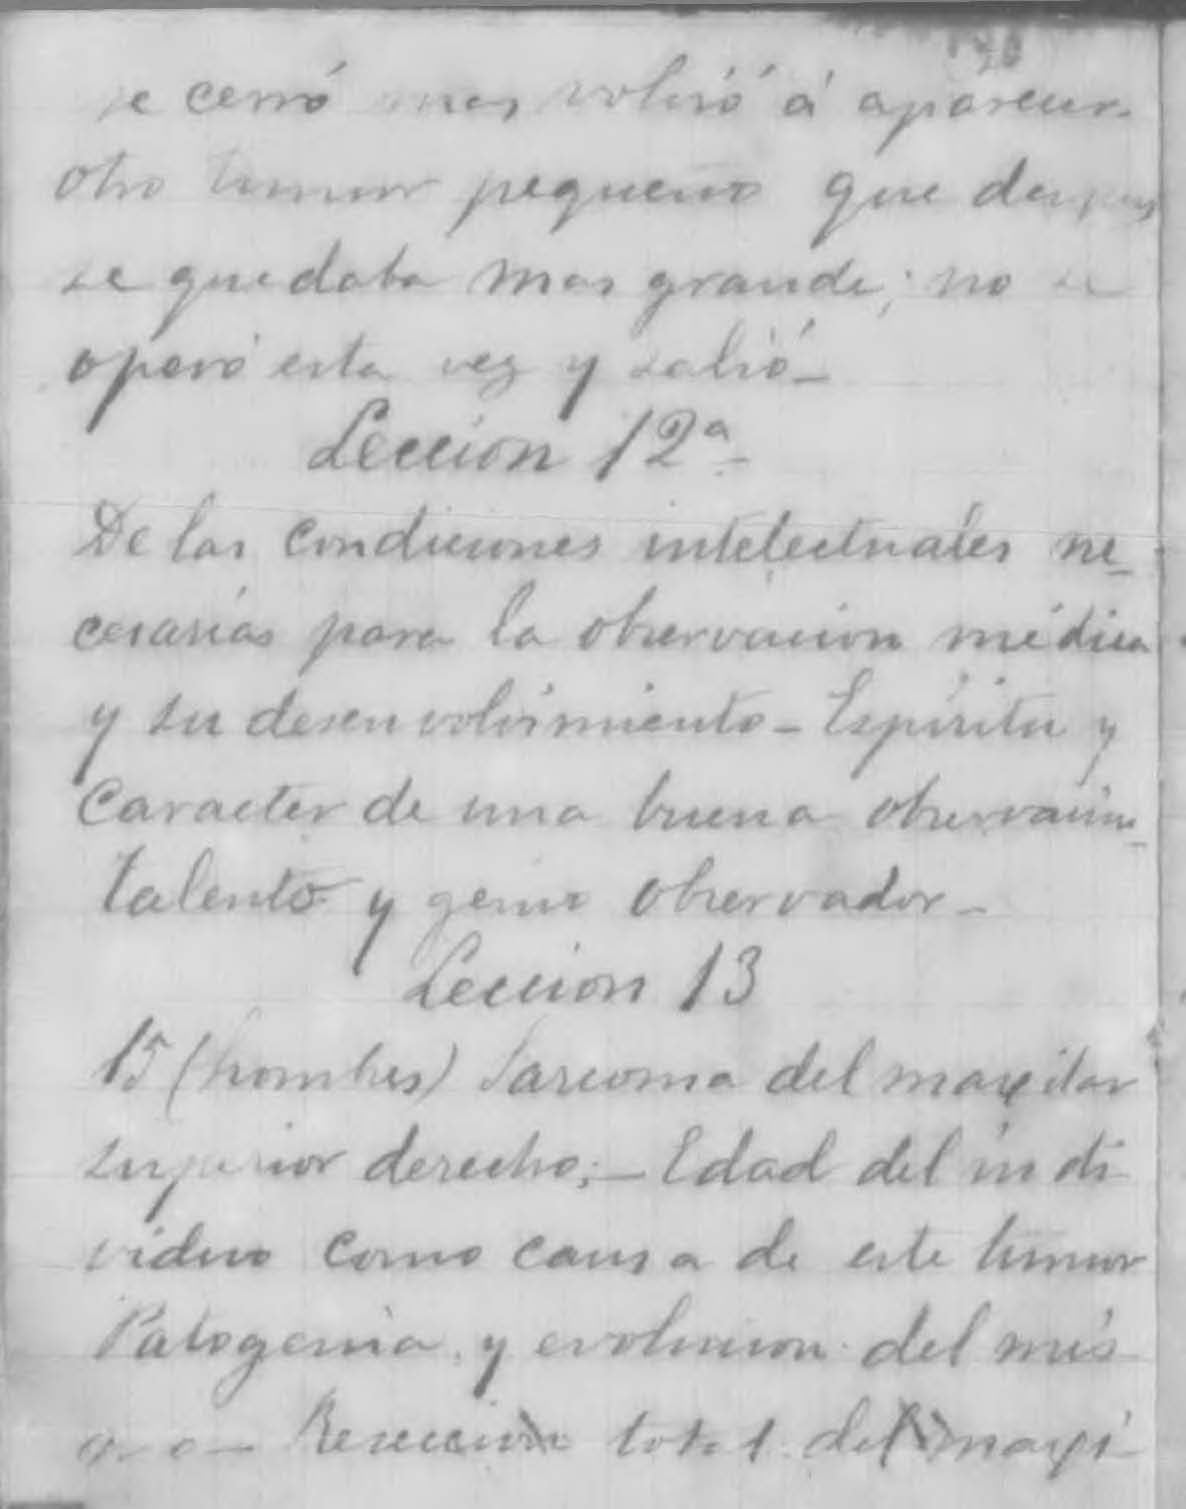 se cerró mas volvió á aparecer
otro tumor pequeno que despues
se quedaba mas grande; no se
operó esta vez y salió-
Leccion 12ª
De las condiciones intelectuales ne-
cesarias para la observacion médica
y su desenvolvimiento - Espíritu y
Caracter de una buena observacion-
talento y genio observador -
Leccion 13
15 (hombres) Sarcoma del maxilar
superior derecho; - Edad del indi
viduo como causa de este tumor
Patogenia, y evolucion del mis
Reseccion total del maxi-